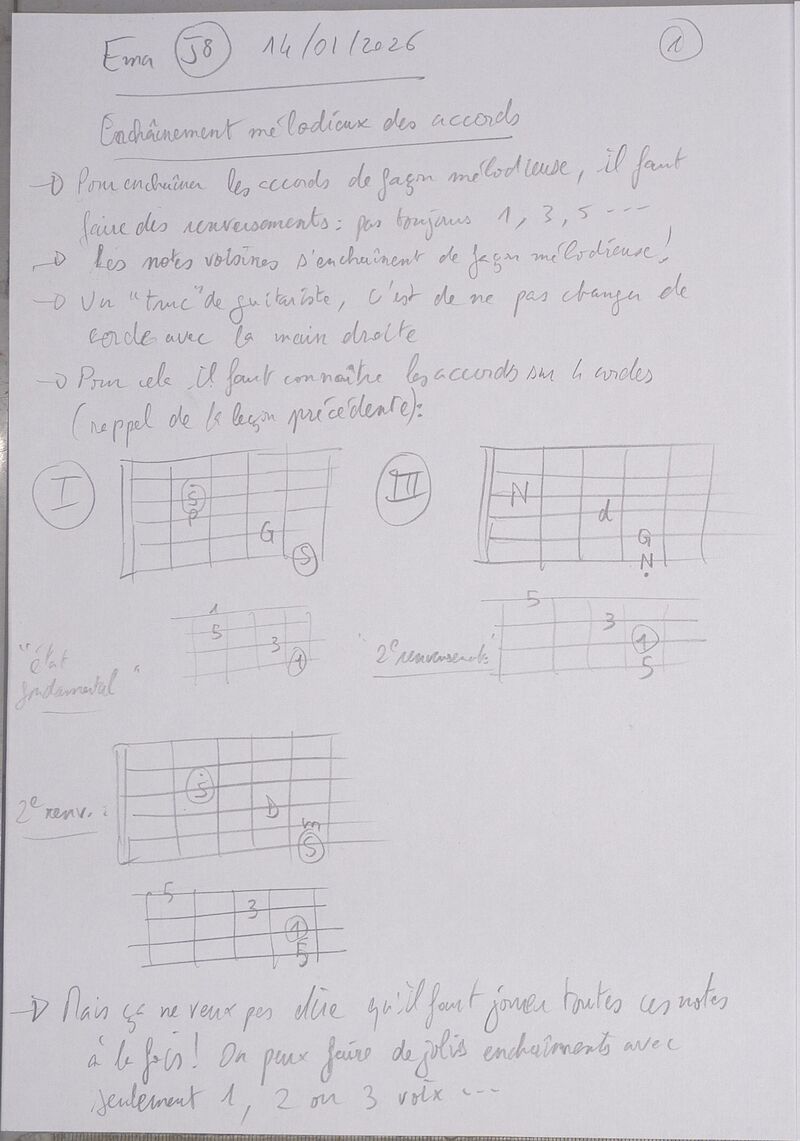 Ema J8 14/01/2026 1
Enchaînement mélodieux des accords
→ Pour enchaîner les accords de façon mélodieuse, il faut
faire des renversements : pas toujours 1, 3, 5 ---
→ Les notes voisines s'enchaînent de façon mélodieuse !
→ Un "truc" de guitariste, c'est de ne pas changer de
corde avec la main droite
→ Pour cela il faut connaître les accords sur 4 cordes
(rappel de la leçon précédente) :
I III
S N
P d
G G
S N
1 5
5 3 3
1 1
5
"état
fondamental"
"2e renversement"
2e renv. :
S
D
m
S
5
3
1
5
→ Mais ça ne veux pas dire qu'il faut jouer toutes ces notes
à la fois ! On peux faire de jolis enchaîments avec
seulement 1, 2 ou 3 voix ---